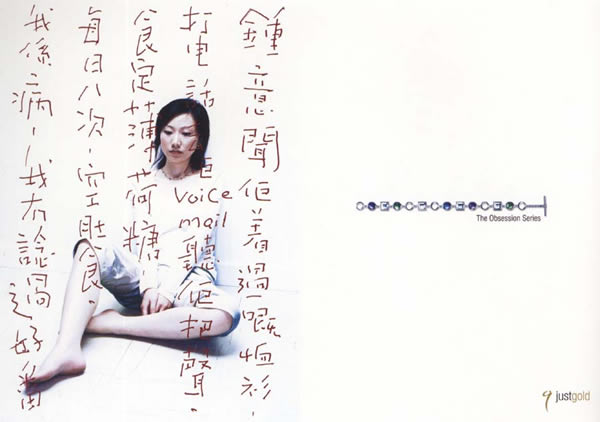 鍾意聞佢着過嘅恤衫，
打电話佢 voice mail 聽佢把聲。
食定薄荷糖，
每日八次，空肚食。
我係病，我冇諗過好番
The Obsession Series
justgold